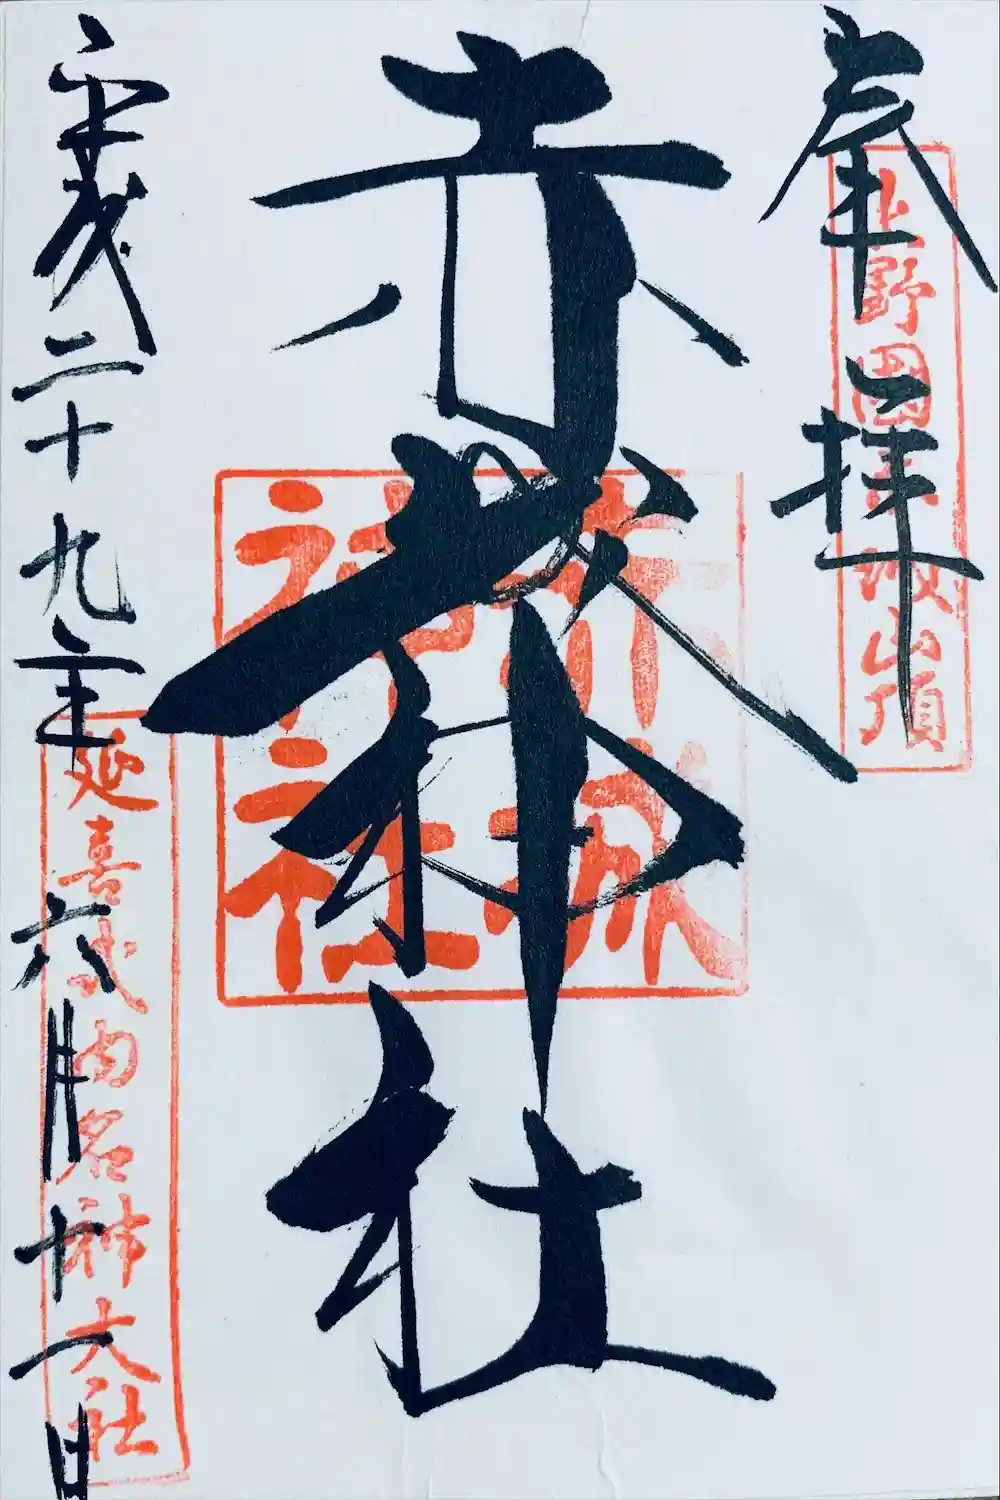 奉拝
上野國赤城山頂
赤城神社
赤城神社
平成二十九年六月十一日
延喜式内名神大社